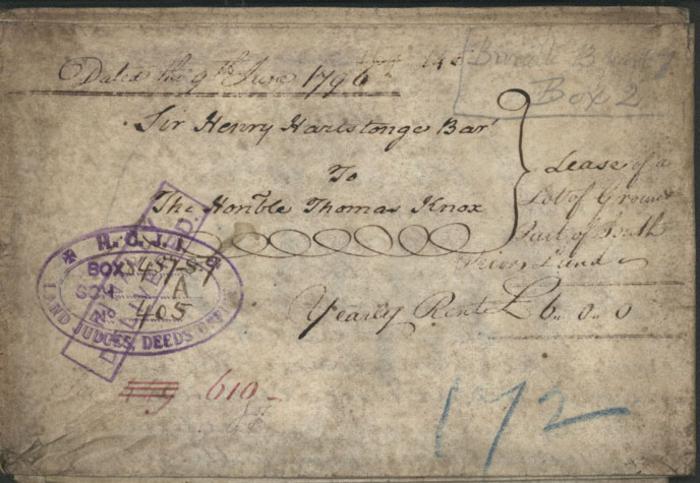 Dated the 9th June 1796
Box 2
Sir Henry Harestonge Bart
To
The Honble Thomas Knox
Lease of a
Lot of Ground
Part of South
Priors Land
Yearly Rent £6..0..0
H.C.J.I.
BOX 3457-57
SCH A
No 405
LAND JUDGES DEEDS
610
172